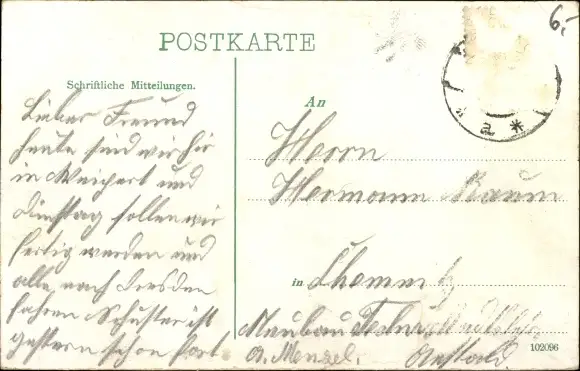 6,-
POSTKARTE
Schriftliche Mitteilungen.
Lieber Freund
heute sind wir hir
in Weichert und
Dinstag sollen wir
fertig werden und
alle nach Dresden
fahren Schuster ist
gestern schon fort
An
Herrn
Hermann Baum
in Chemnitz
Neubau
a. Menzel.
102096